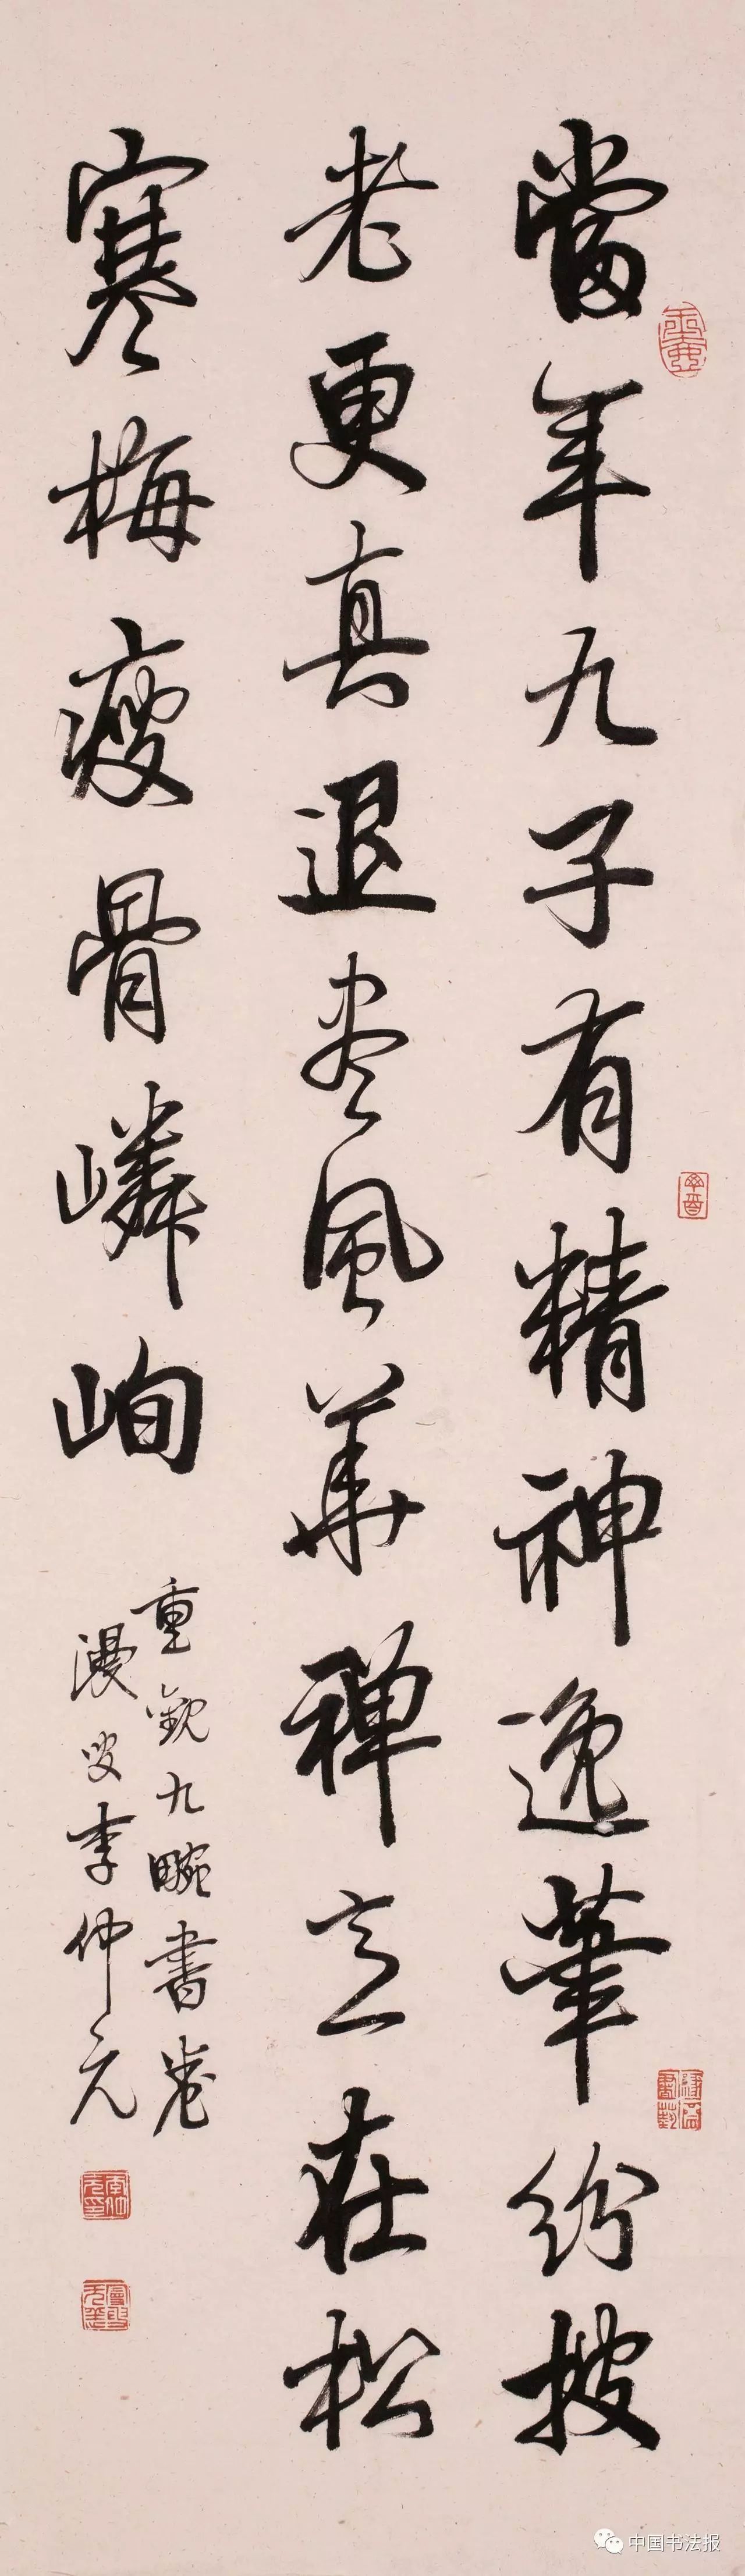 當年九子有精神逸筆紛披
老更真退盡風華禪意在松
寒梅瘦骨嶙峋
重觀九畹書卷
漫叟李仲元
中国书法报